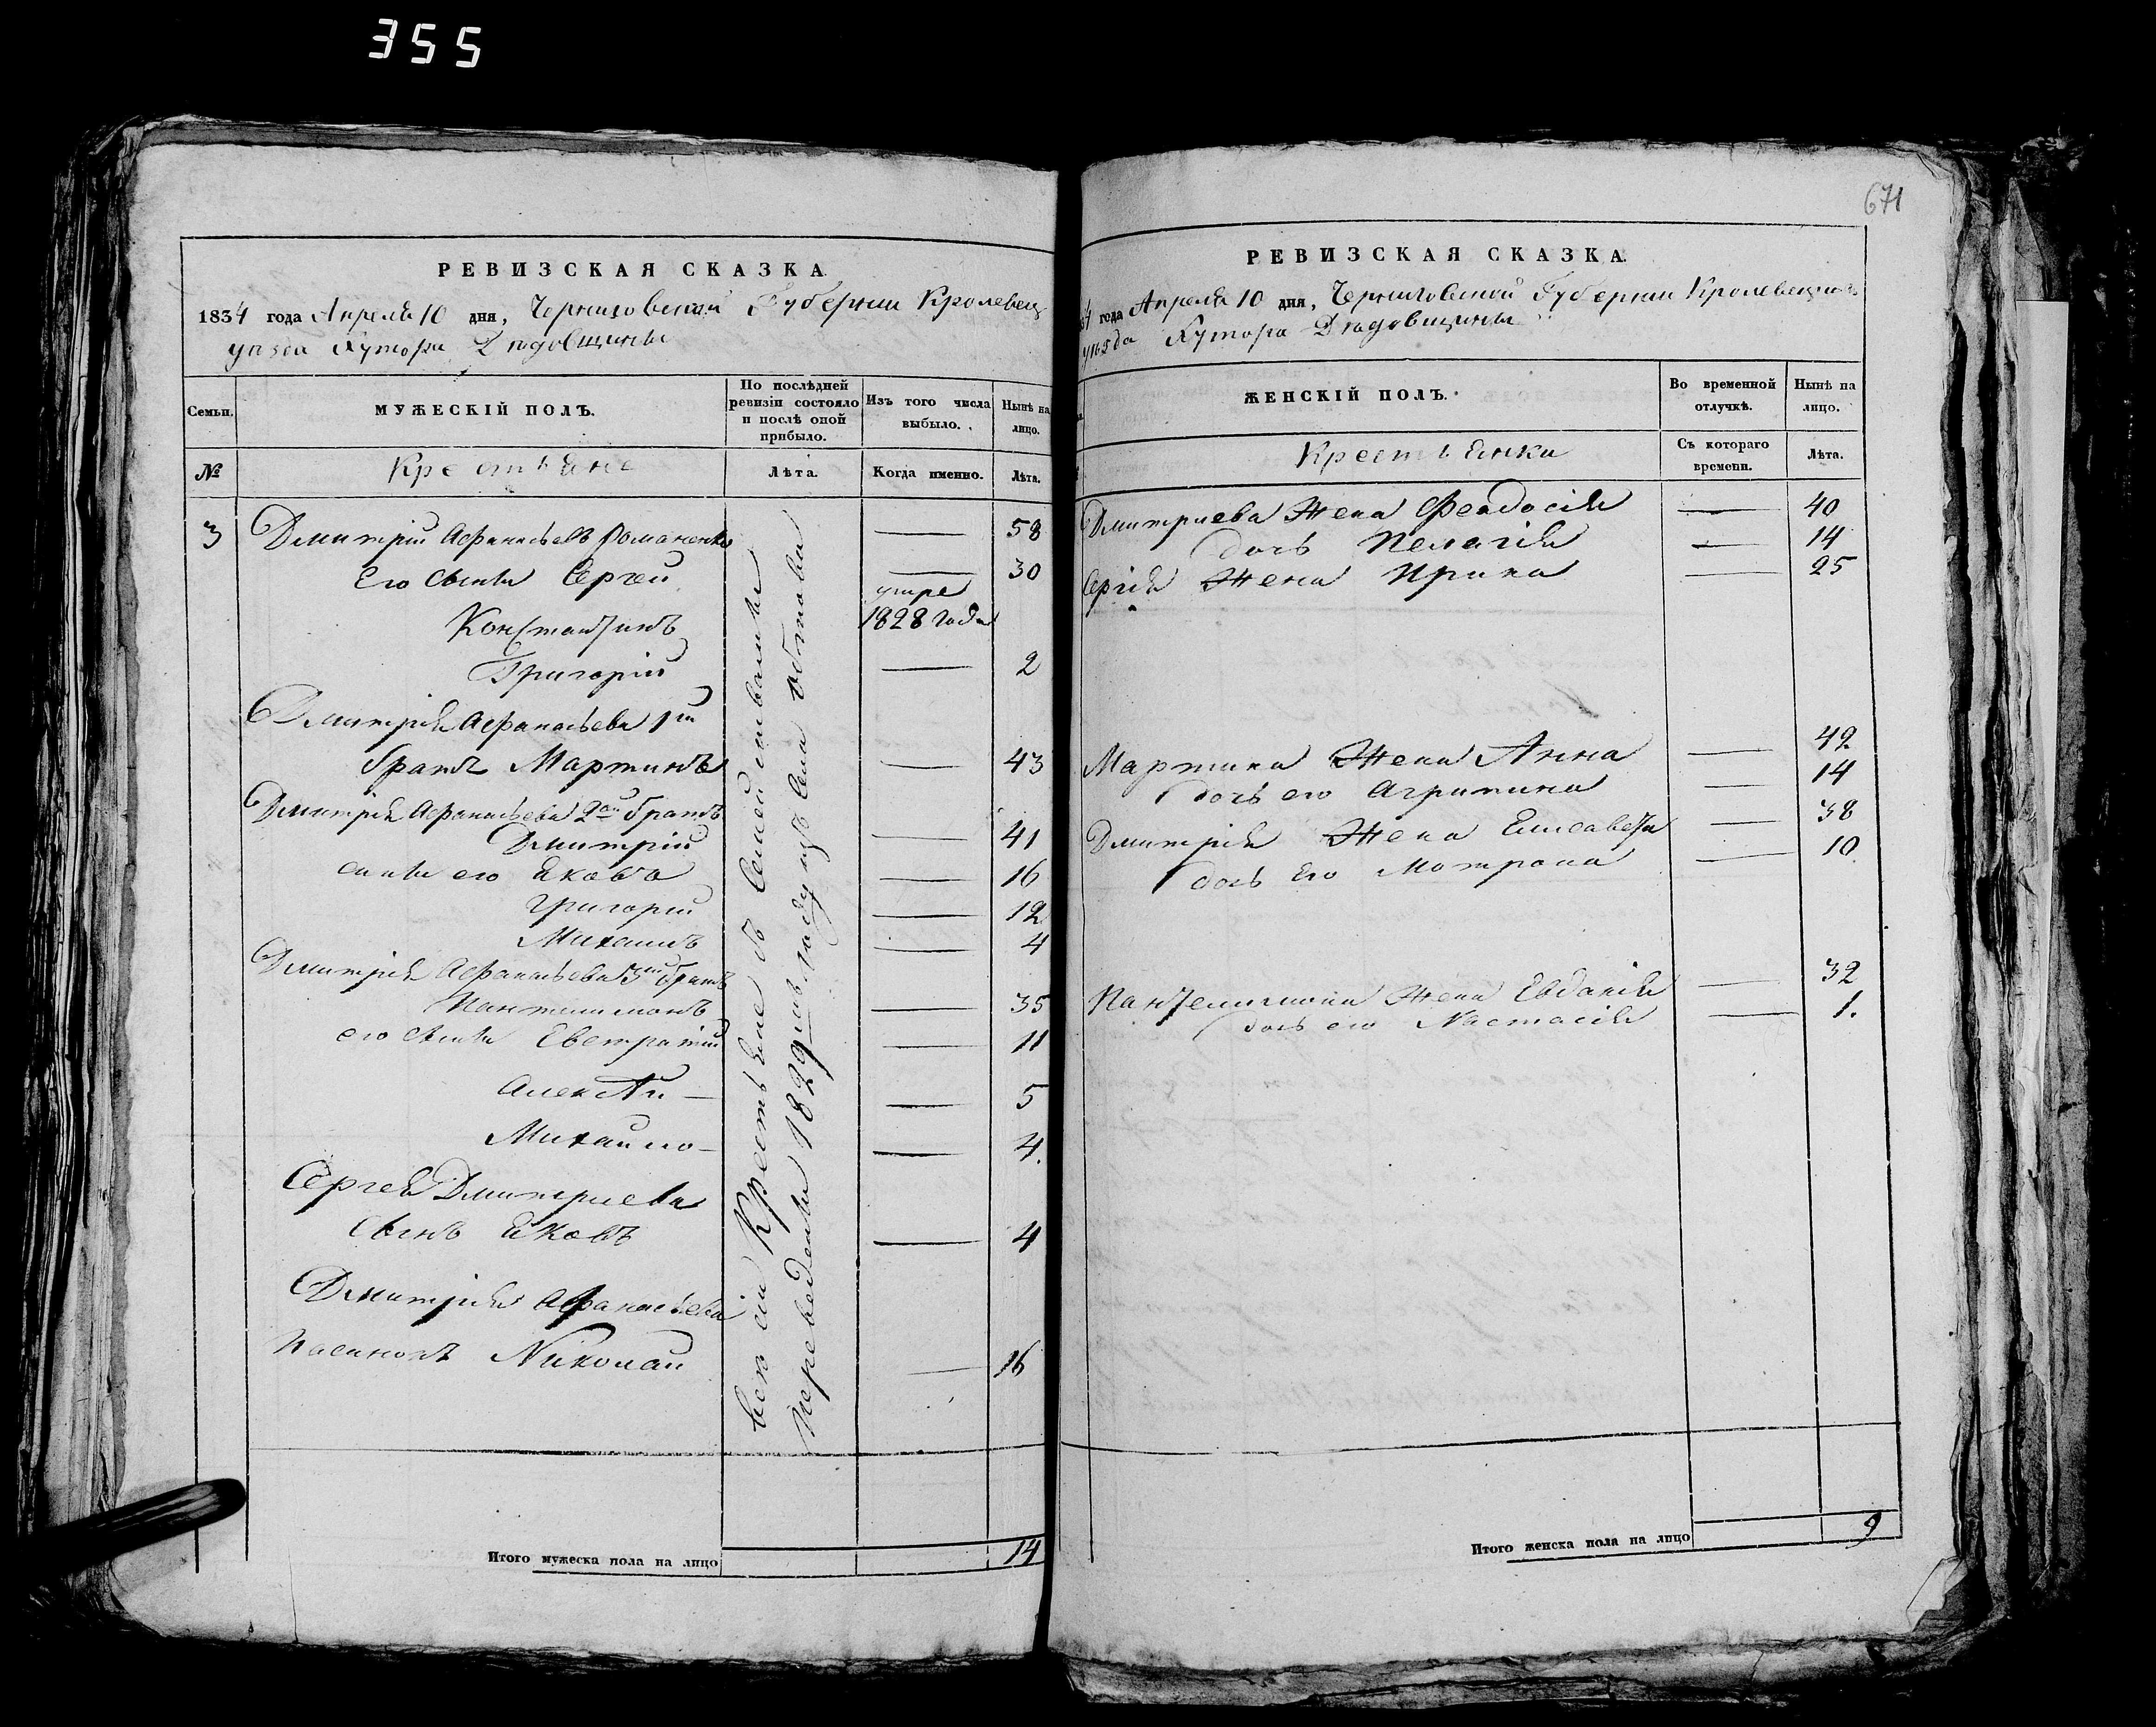 355
671
РЕВИЗСКАЯ СКАЗКА.
1834 года Апреля 10 дня, Черниговской Губернии Кролевец
уѣзда Хутора Дядовщины
Семьи.
МУЖЕСКІЙ ПОЛЪ.
По послѣдней ревизіи состояло и послѣ оной прибыло.
Изъ того числа выбыло.
Нынѣ на лицо.
№
Крестьяне
Лѣта.
Когда именно.
Лѣта.
3 Дмитрій Афанасьевъ Романенко — 58
Его сыны Сергей — 30
Константинъ умре 1828 года
Григорій — 2
Дмитрія Афанасьева 1й
братъ Мартинъ — 43
Дмитрія Афанасьева 2ой братъ
Дмитрій — 41
сыны его Яковъ — 16
Григорій — 12
Михаилъ — 4
Дмитрія Афанасьева 3й братъ
Пантелимонъ — 35
его сыны Евстратій — 11
Алексѣй — 5
Михайло — 4.
Сергея Дмитриева
сынъ Яковъ — 4
Дмитрія Афанасьева
пасинокъ Николай — 16
всѣ сіи Крестьяне съ Семействами
переведены 1829мъ году изъ села
Итого мужеска пола на лицо 14
РЕВИЗСКАЯ СКАЗКА.
4 года Апреля 10 дня, Черниговской Губернии Кролевецкого
уѣзда Хутора Дядовщины
ЖЕНСКІЙ ПОЛЪ.
Во временной отлучкѣ.
Нынѣ на лицо.
Крестьянки
Съ котораго времени.
Лѣта.
Дмитриева Жена Феодосія — 40
дочь Пелагія — 14
Сергія Жена Ирина — 25
Мартина Жена Анна — 42
дочь его Агрипина — 14
Дмитрія Жена Елисавета — 38
дочь Его Мотрона — 10
Пантелимона Жена Евдокія — 32
дочь его Настасія — 1.
Итого женска пола на лицо 9